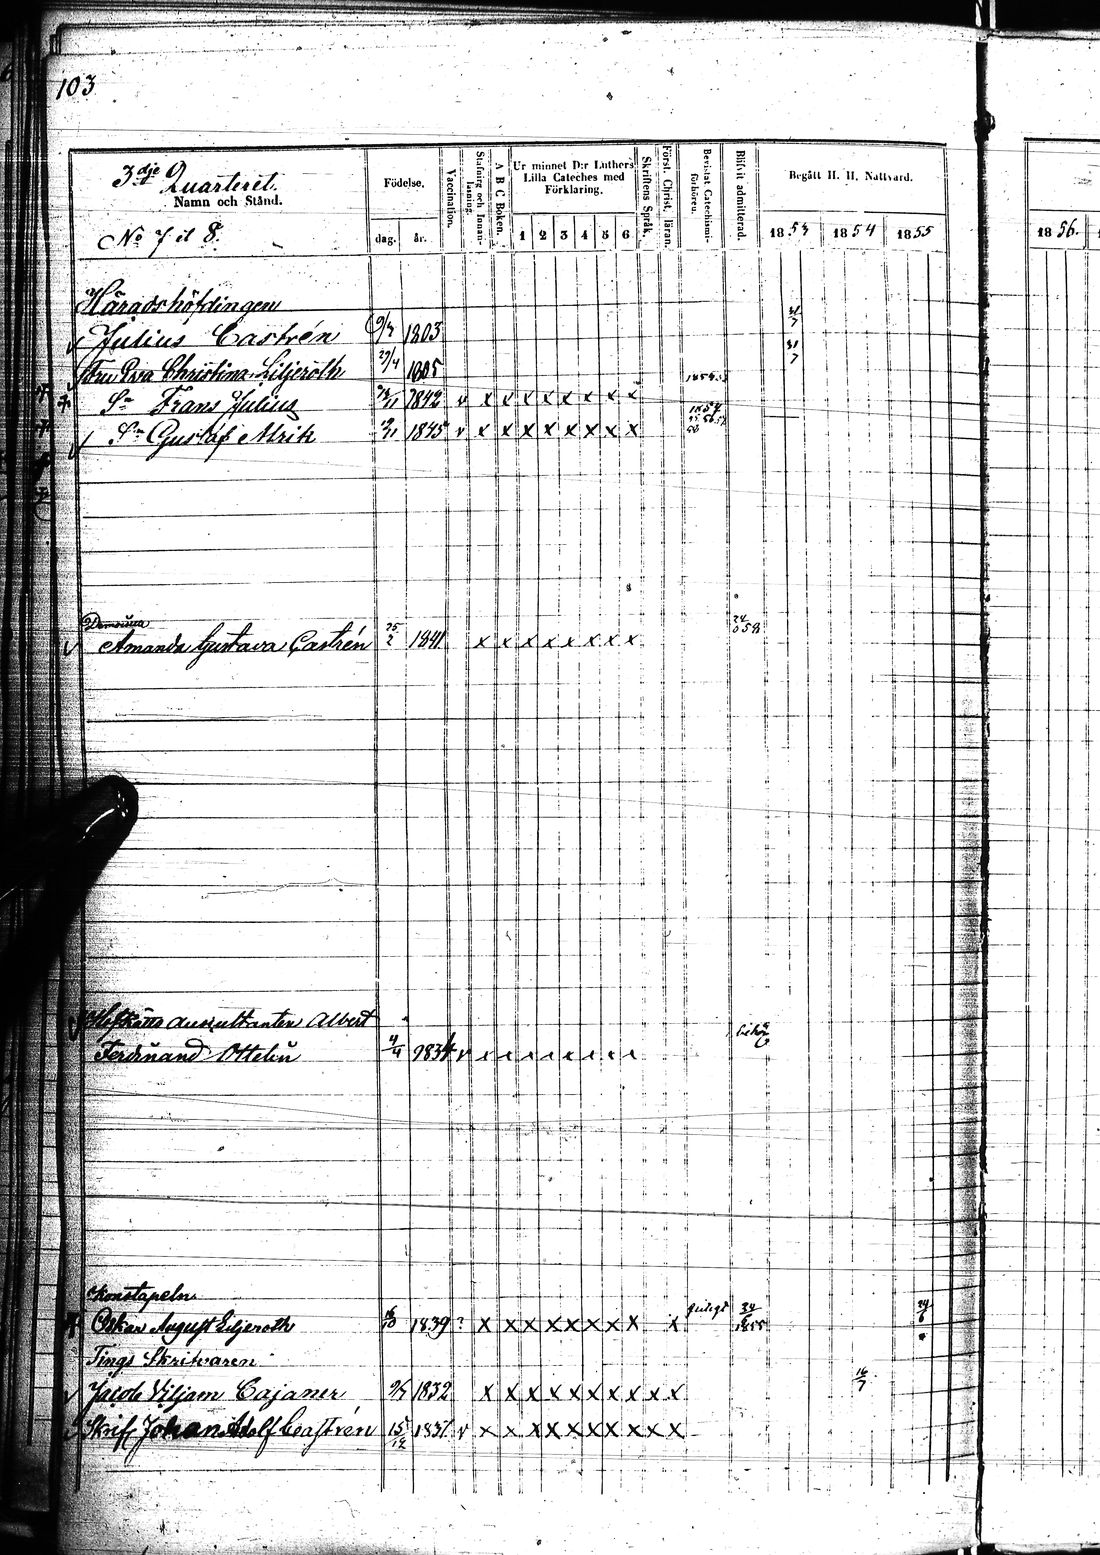 103
3dje Quarteret.
Namn och Stånd.
No 7 et 8.
Födelse.
dag. år.
Vaccination.
Stafning och Innanläsning.
A B C Boken.
Ur minnet D:r Luthers
Lilla Cateches med
Förklaring.
1 2 3 4 5 6
Skriftens Språk.
Först. Christ. läran.
Bevistat Catechismi-förhören.
Blifvit admitterad.
Begått H. H. Nattvard.
1853 1854 1855
1856.
Häradshöfdingen
Julius Castrén 1803 31/7
Fru Eva Christina Liljeroth 29/4 1805 31/7
Sn Frans Julius 1842 v x x x x x x x x
Sn Gustaf Alrik 1845 v x x x x x x x x 1854
Demoiselle
Amanda Gustava Castrén 25/2 1841 x x x x x x x x
Hofrätts auscultanten Albert
Ferdinand Ottelin 1834 v
Konstapeln
Oskar August Liljeroth 1839 ? x x x x x x x x x 1855 24/6
Tings Skrifvaren
Jacob Viljam Cajaner 1832 x x x x x x x x x x 16/7
Skrif Johan Adolf Castrén 15/12 1837 v x x x x x x x x x x